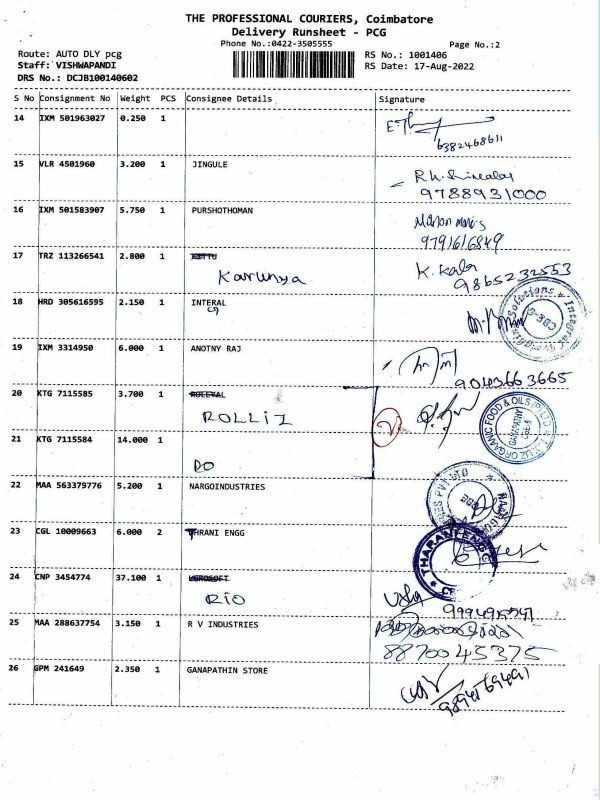 THE PROFESSIONAL COURIERS, Coimbatore
Delivery Runsheet - PCG
Phone No.:0422-3505555
Page No.:2
Route: AUTO DLY pcg
RS No.: 1001406
Staff: VISHWAPANDI
RS Date: 17-Aug-2022
DRS No.: DCJB100140602
S No Consignment No Weight PCS Consignee Details Signature
14 IXM 501963027 0.250 1
6382468611
15 VLR 4501960 3.200 1 JINGULE
9788931000
16 IXM 501583907 5.750 1 PURSHOTHOMAN
9791616849
17 TRZ 113266541 2.800 1 KITTU
Karunya K. Kala
9865232553
18 HRD 305616595 2.150 1 INTERAL
19 IXM 3314950 6.000 1 ANOTNY RAJ
9043663665
20 KTG 7115585 3.700 1
ROLLIZ
21 KTG 7115584 14.000 1
DO
22 MAA 563379776 5.200 1 NARGOINDUSTRIES
23 CGL 10009663 6.000 2 THRANI ENGG
24 CNP 3454774 37.100 1
RIO
Usha
25 MAA 288637754 3.150 1 R V INDUSTRIES
8870045375
26 GPM 241649 2.350 1 GANAPATHIN STORE
9894569491